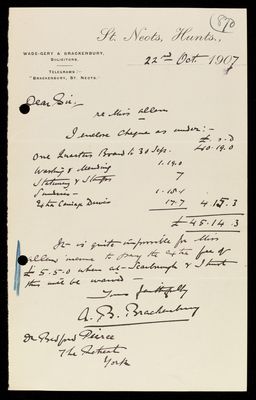 890
St. Neots, Hunts.,
WADE-GERY & BRACKENBURY,
SOLICITORS.
22nd Oct 1907
TELEGRAMS:-
"BRACKENBURY, ST. NEOTS."
Dear Sir,
re Miss Allen
I enclose cheque as under:-
£. s. d
One Quarters Board to 30 Sep. 40.19.0
Washing & Mending 1.19.0
Stationery & Stamps 7
Sundries -
Extra Carriage Drives 17.7 4.15.3
£45.14.3
It is quite impossible for Miss
Allens income to pay the extra fee of
£5.5.0 when at Scarbrough & I trust
this will be waived -
Yours faithfully
A. B. Brackenbury
Dr Bedford Pierce
The Retreat
York